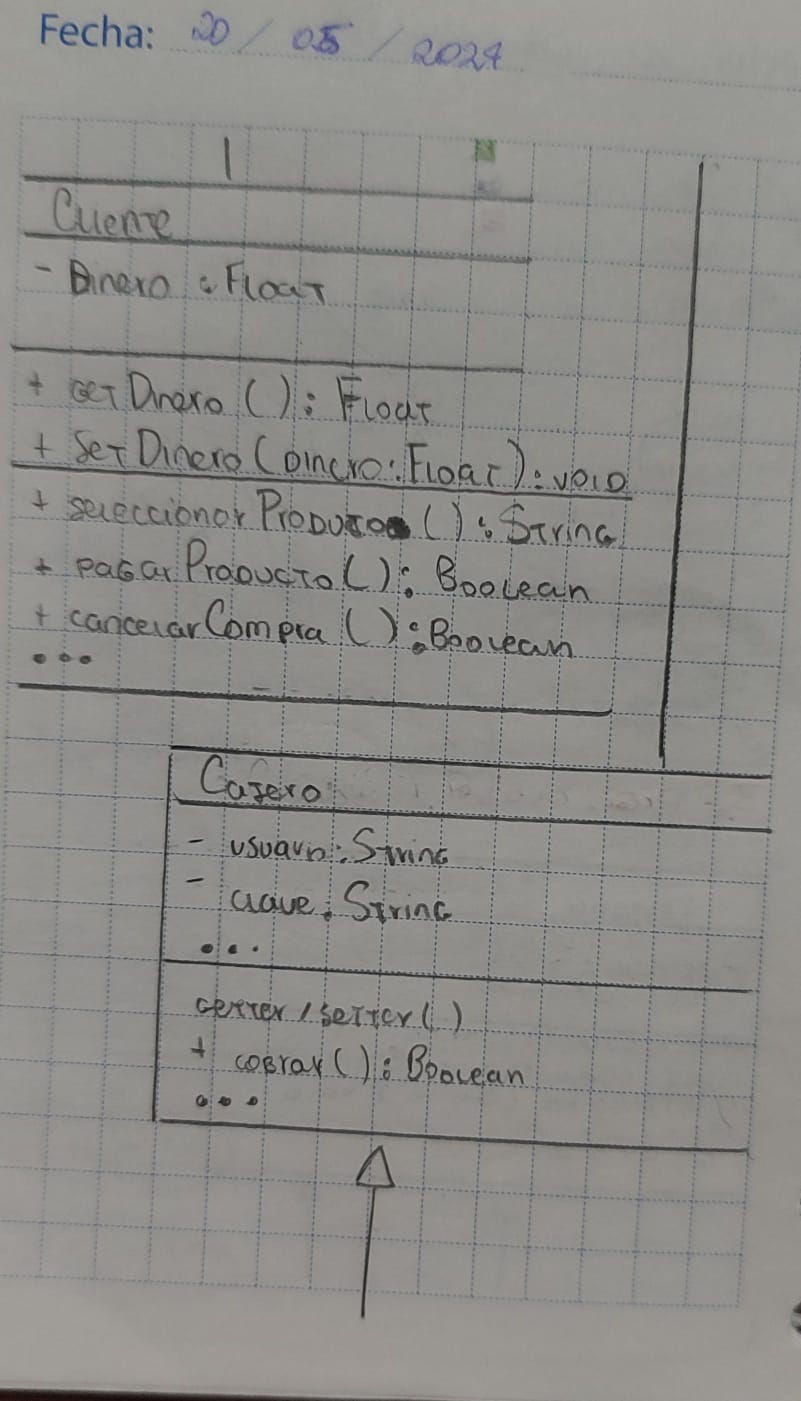 Fecha: 20 / 05 / 2024
Cliente
- Dinero : Float
+ getDinero ( ) : Float
+ SetDinero (Dinero : Float) : void
+ seleccionar Producto ( ) : String
+ pagar Producto ( ) : Boolean
+ cancelar Compra ( ) : Boolean
...
Cajero
- usuario : String
- clave : String
...
getter / setter ( )
+ cobrar ( ) : Boolean
...